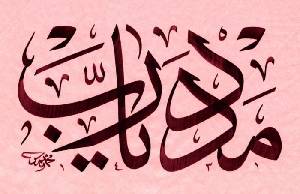 مدد يا ربّ